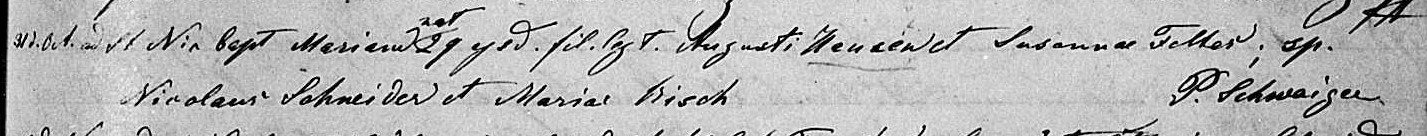 31. Oct. ad St Nic bapt Mariam nat 29 ejsd. fil. legt. Augusti Hansen et Susannae Feltes, sp.
Nicolaus Schneider et Maria Risch
P. Schwaiger